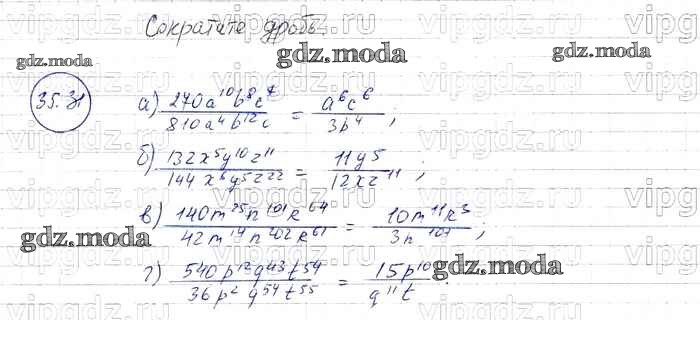 Сократите дробь
35.31
а) 270a¹⁰b⁸c⁷ / 810a⁴b¹²c = a⁶c⁶ / 3b⁴ ;
б) 132x⁵y¹⁰z¹¹ / 144x⁶y⁵z²² = 11y⁵ / 12xz¹¹ ;
в) 140m²⁵n¹⁰¹k⁶⁴ / 42m¹⁴n²⁰²k⁶¹ = 10m¹¹k³ / 3n¹⁰¹ ;
г) 540p¹²q⁴³t⁵⁴ / 36p²q⁵⁴t⁵⁵ = 15p¹⁰ / q¹¹t
gdz.moda
gdz.moda
gdz.moda
gdz.moda
gdz.moda